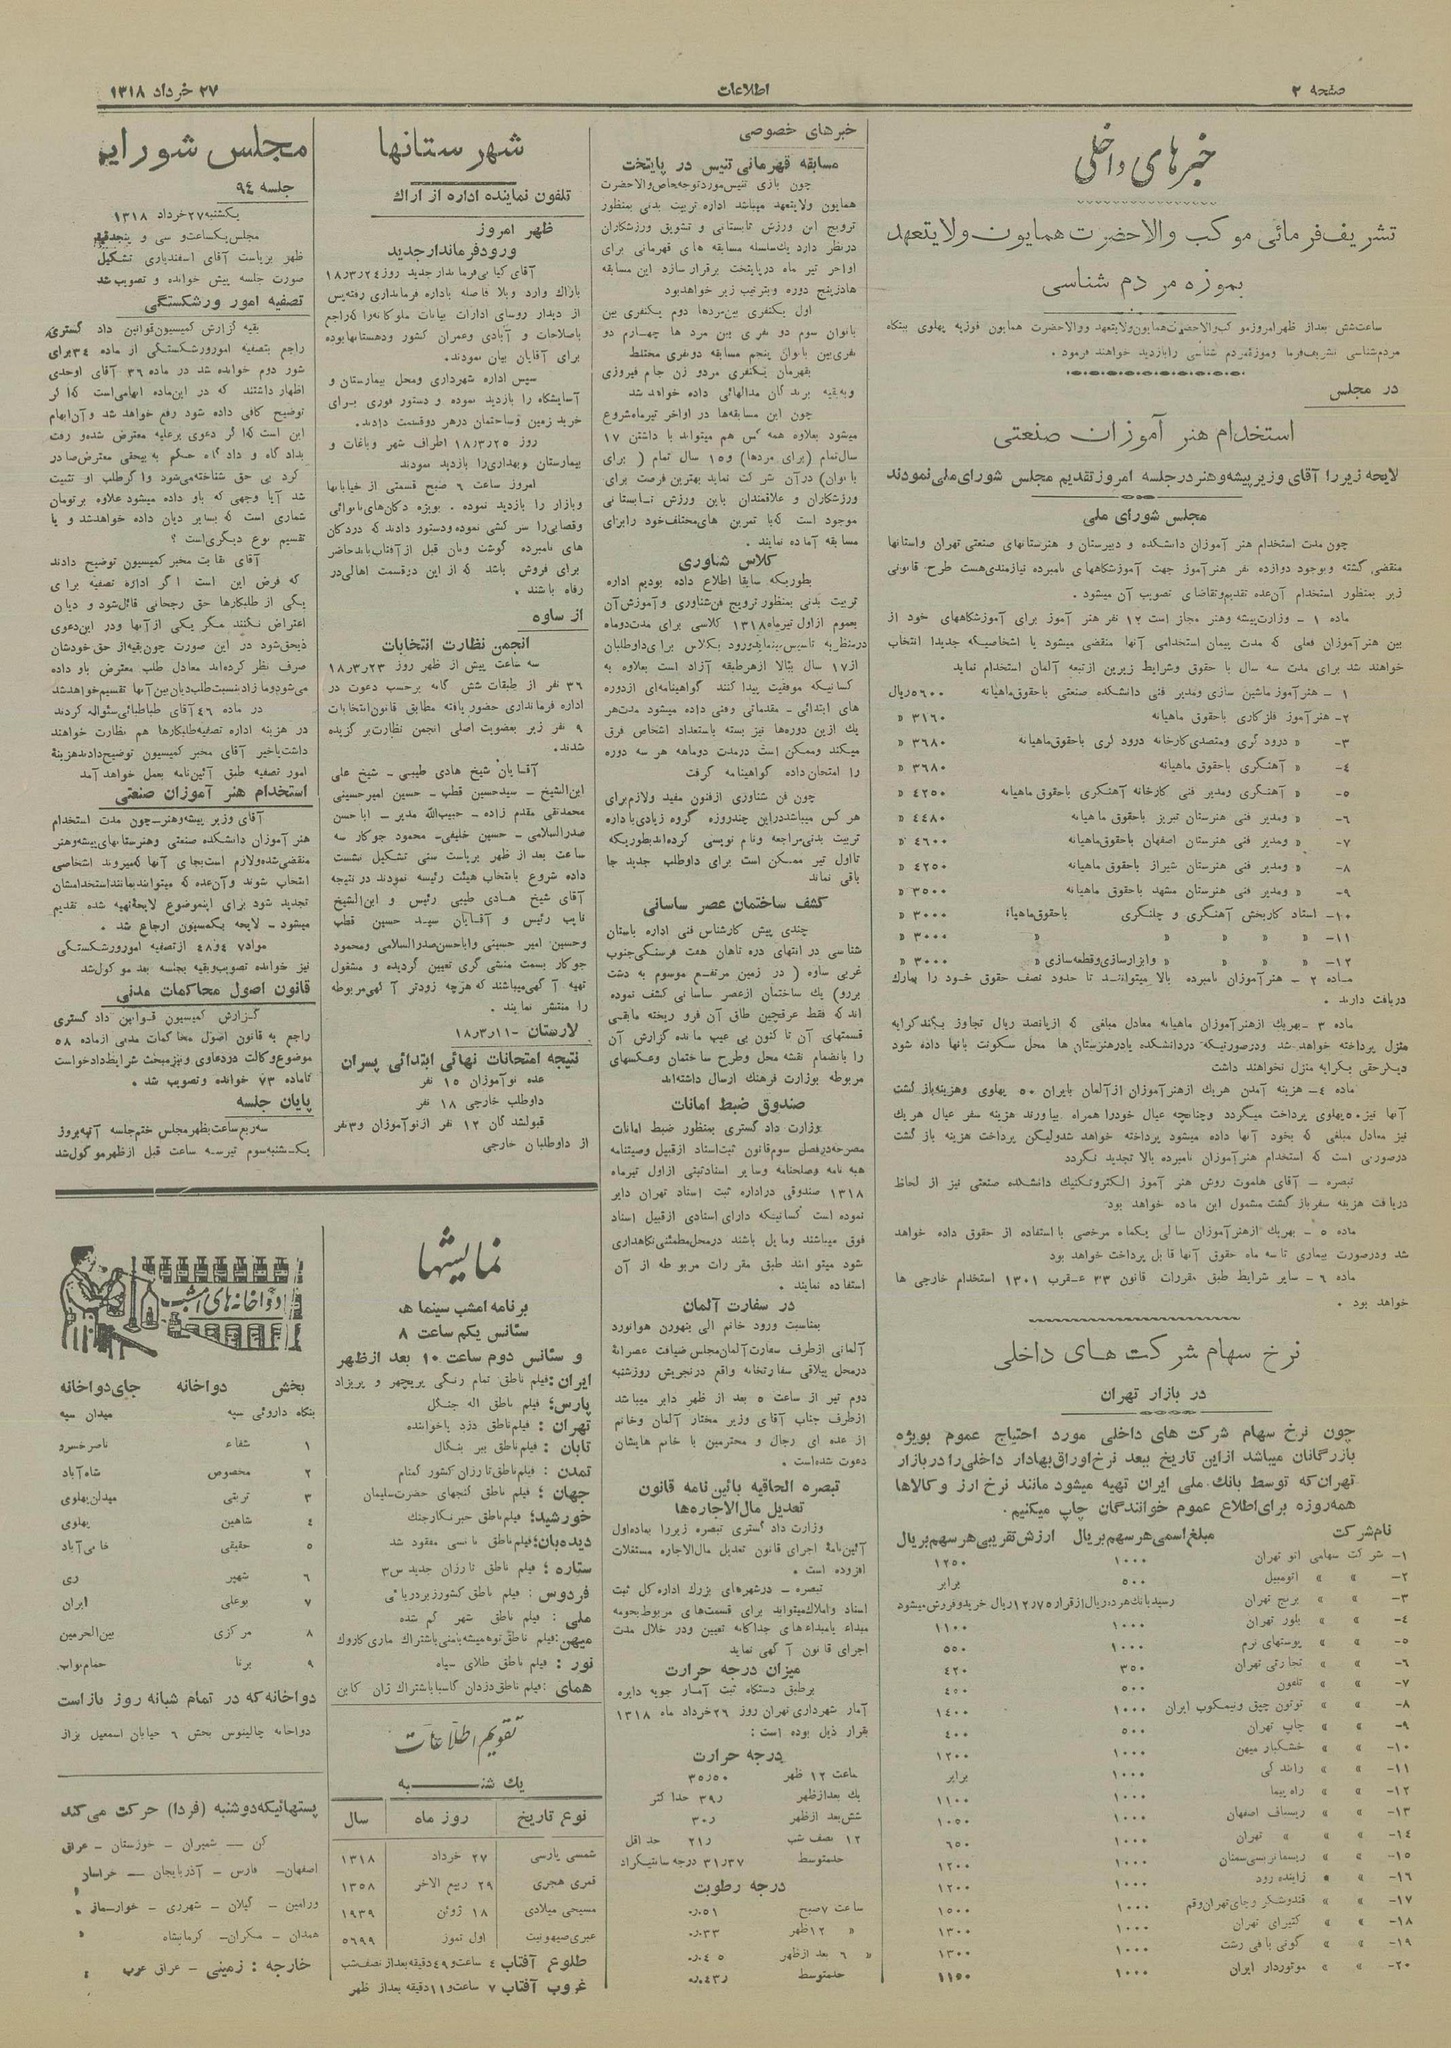 صفحه ۲
اطلاعات
۲۷ خرداد ۱۳۱۸
خبرهای داخلی
تشریف‌فرمائی موکب والاحضرت همایون ولایتعهد
بموزه مردم شناسی
ساعت‌شش بعداز ظهر امروز موکب والاحضرت همایون ولایتعهد ووالاحضرت همایون فوزیه پهلوی ببنگاه
مردم‌شناسی تشریف‌فرما وموزهٔ‌مردم شناسی رابازدید خواهند فرمود .
در مجلس
استخدام هنر آموزان صنعتی
لایحه زیر را آقای وزیر پیشه‌وهنر درجلسه امروز تقدیم مجلس شورای‌ملی نمودند
مجلس شورای ملی
چون مدت استخدام هنر آموزان دانشکده و دبیرستان و هنرستانهای صنعتی تهران واستانها
منقضی گشته وبوجود دوازده نفر هنرآموز جهت آموزشگاههای نامبرده نیازمندی‌هست طرح قانونی
زیر بمنظور استخدام آن‌عده تقدیم‌وتقاضای تصویب آن میشود .
ماده ۱ - وزارت‌پیشه وهنر مجاز است ۱۲ نفر هنر آموز برای آموزشگاههای خود از
بین هنرآموزان فعلی که مدت پیمان استخدامی آنها منقضی میشود یا اشخاصیکه جدیدا انتخاب
خواهند شد برای مدت سه سال با حقوق وشرایط زیرین ازتبعه آلمان استخدام نماید
۱ - هنرآموز ماشین سازی ومدیر فنی دانشکده صنعتی باحقوق‌ماهیانه ۵۶۰۰ریال
۲- هنرآموز فلزکاری باحقوق ماهیانه ۳۱۶۰ »
۳- » درودگری ومتصدی‌کارخانه درودگری باحقوق‌ماهیانه ۳۶۸۰ »
۴- » آهنگری باحقوق ماهیانه ۳۶۸۰ »
۵- » آهنگری ومدیر فنی کارخانه آهنگری باحقوق ماهیانه ۴۲۵۰ »
۶- » ومدیر فنی هنرستان تبریز باحقوق ماهیانه ۴۴۸۰ »
۷- » ومدیر فنی هنرستان اصفهان باحقوق‌ماهیانه ۴۶۰۰ »
۸- » ومدیر فنی هنرستان شیراز باحقوق ماهیانه ۴۲۵۰ »
۹- » ومدیر فنی هنرستان مشهد باحقوق ماهیانه ۳۵۰۰ »
۱۰- استاد کاربخش آهنگری و چلنگری باحقوق‌ماهیانه ۳۰۰۰ »
۱۱- » » » » » ۳۰۰۰ »
۱۲- » » » وابزارسازی‌وقطعه‌سازی » ۳۰۰۰ »
ماده ۲ - هنرآموزان نامبرده بالا میتوانند تا حدود نصف حقوق خود را بمارک
دریافت دارند .
ماده ۳ -بهریک ازهنرآموزان ماهیانه معادل مبلغی که ازپانصد ریال تجاوز نکندکرایه
منزل پرداخته خواهد شد ودرصورتیکه دردانشکده یادرهنرستان ها محل سکونت بآنها داده شود
دیگرحقی بکرایه منزل نخواهند داشت
ماده ۴- هزینه آمدن هریک ازهنرآموزان ازآلمان بایران ۵۰ پهلوی وهزینه‌بازگشت
آنها نیز۵۰پهلوی پرداخت میگردد وچنانچه عیال خودراهمراه بیاورند هزینه سفر عیال هریک
نیز معادل مبلغی که بخود آنها داده میشود پرداخته خواهد شدولیکن پرداخت هزینه بازگشت
درصورتی است که استخدام هنرآموزان نامبرده بالا تجدید نگردد
تبصره - آقای هلموت روش هنر آموز الکتروتکنیک دانشکده صنعتی نیز از لحاظ
دریافت هزینه سفربازگشت مشمول این ماده خواهد بود
ماده ۵ - بهریک ازهنرآموزان سالی یکماه مرخصی با استفاده از حقوق داده خواهد
شد ودرصورت بیماری تا سه ماه حقوق آنها قابل پرداخت خواهد بود
ماده ۶ - سایر شرایط طبق مقررات قانون ۲۳ عقرب ۱۳۰۱ استخدام خارجی ها
خواهد بود .
نرخ سهام شرکت های داخلی
در بازار تهران
چون نرخ سهام شرکت های داخلی مورد احتیاج عموم بویژه
بازرگانان میباشد ازاین تاریخ ببعد نرخ‌اوراق‌بهادار داخلی‌را دربازار
تهران‌که توسط بانک ملی ایران تهیه میشود مانند نرخ ارز وکالاها
همه‌روزه برای‌اطلاع عموم خوانندگان چاپ میکنیم.
نام‌شرکت مبلغ‌اسمی‌هر سهم‌بریال ارزش‌تقریبی‌هر سهم‌بریال
۱- شرکت سهامی اتو تهران ۱۰۰۰ ۱۲۵۰
۲- » » اتومبیل ۵۰۰ برابر
۳- » » برنج تهران رسیدبانک‌هرده‌ریال‌ازقرار۱۲٫۷۵ریال خریدوفروش‌میشود
۴- » » بلور تهران ۱۰۰۰ ۱۱۰۰
۵- » » پوستهای نرم ۱۰۰۰ ۵۵۰
۶- » » تجارتی تهران ۳۵۰ ۴۲۰
۷- » » تلفون ۵۰۰ ۴۵۰
۸- » » توتون چپق وتیمکوب ایران ۱۰۰۰ ۱۴۰۰
۹- » » چاپ تهران ۵۰۰ ۴۰۰
۱۰- » » خشکبار میهن ۱۰۰۰ ۱۲۰۰
۱۱- » » رانندگی ۱۰۰۰ برابر
۱۲- » » راه پیما ۱۰۰۰ ۱۱۰۰
۱۳- » » ریسباف اصفهان ۱۰۰۰ ۱۰۵۰
۱۴- » » » تهران ۱۰۰۰ ۶۵۰
۱۵- » » ریسمانریسی‌سمنان ۱۰۰۰ ۱۲۰۰
۱۶- » » زاینده رود ۱۰۰۰ ۱۲۰۰
۱۷- » » قندوشکر وچای‌تهران‌وقم ۱۰۰۰ ۱۵۰۰
۱۸- » » کتیرای تهران ۱۰۰۰ ۱۳۰۰
۱۹- » » گونی بافی رشت ۱۰۰۰ ۱۳۰۰
۲۰- » » موتوردار ایران ۱۰۰۰ ۱۱۵۰
خبرهای خصوصی
مسابقه قهرمانی تنیس در پایتخت
چون بازی تنیس‌موردتوجه‌خاص‌والاحضرت
همایون ولایتعهد میباشد اداره تربیت بدنی بمنظور
ترویج این ورزش تابستانی و تشویق ورزشکاران
درنظر دارد یک‌سلسله مسابقه های قهرمانی برای
اواخر تیر ماه درپایتخت برقرار سازد این مسابقه
هادرپنج دوره وبترتیب زیر خواهدبود
اول یکنفری بین‌مردها دوم یکنفری بین
بانوان سوم دو نفری بین مرد ها چهارم دو
نفری‌بین بانوان پنجم مسابقه دونفری مختلط
بقهرمان یکنفری مردو زن جام فیروزی
وبه‌بقیه برندگان مدالهائی داده خواهد شد
چون این مسابقه‌ها در اواخر تیرماه‌شروع
میشود بعلاوه همه کس هم میتواند با داشتن ۱۷
سال‌تمام (برای مردها) و۱۵ سال تمام ( برای
بانوان) درآن شرکت نماید بهترین فرصت برای
ورزشکاران و علاقمندان باین ورزش تابستانی
موجود است که‌با تمرین های‌مختلف‌خود رابرای
مسابقه آماده نمایند .
کلاس شناوری
بطوریکه سابقا اطلاع داده بودیم اداره
تربیت بدنی بمنظور ترویج فن‌شناوری و آموزش‌آن
بعموم ازاول تیرماه۱۳۱۸ کلاسی برای مدت‌دوماه
درمنظریه تاسیس‌مینماید ورود بکلاس برای‌داوطلبان
از۱۷ سال ببالا ازهرطبقه آزاد است بعلاوه به
کسانیکه موفقیت پیدا کنند گواهینامه‌ای ازدوره
های ابتدائی - مقدماتی وفنی داده میشود مدت‌هر
یک ازین دوره‌ها نیز بسته باستعداد اشخاص فرق
میکند وممکن است درمدت دوماهه هر سه دوره
را امتحان‌داده گواهینامه گرفت
چون فن شناوری ازفنون مفید ولازم‌برای
هر کس میباشددراین چندروزه گروه زیادی‌باداره
تربیت بدنی‌مراجعه ونام نویسی کرده‌اندبطوریکه
تااول تیر ممکن است برای داوطلب جدید جا
باقی نماند
کشف ساختمان عصر ساسانی
چندی پیش کارشناس فنی اداره باستان
شناسی در انتهای دره تاهان هفت فرسنگی‌جنوب
غربی ساوه ( در زمین مرتفع موسوم به دشت
بررو) یک ساختمان ازعصر ساسانی کشف نموده
اند که فقط عرقچین طاق آن فرو ریخته مابقی
قسمتهای آن تا کنون بی عیب مانده گزارش آن
را بانضمام نقشه محل وطرح ساختمان وعکسهای
مربوطه بوزارت فرهنگ ارسال داشته‌اند
صندوق ضبط امانات
وزارت دادگستری بمنظور ضبط امانات
مصرحه‌درفصل سوم‌قانون ثبت‌اسناد ازقبیل وصیتنامه
هبه نامه وصلحنامه وسایر اسنادثبتی ازاول تیرماه
۱۳۱۸ صندوقی دراداره ثبت اسناد تهران دایر
نموده است کسانیکه دارای اسنادی ازقبیل اسناد
فوق میباشند ومایل باشند درمحل‌مطمئنی‌نگاهداری
شود میتوانند طبق مقررات مربوطه از آن
استفاده نمایند .
در سفارت آلمان
بمناسبت ورود خانم الی بنهورن هوانورد
آلمانی ازطرف سفارت‌آلمان‌مجلس ضیافت عصرانهٔ
درمحل ییلاقی سفارتخانه واقع درتجریش روزشنبه
دوم تیر از ساعت ۵ بعد از ظهر دایر میباشد
ازطرف جناب آقای وزیر مختار آلمان وخانم
از عده ای رجال و محترمین با خانم هایشان
دعوت شده‌است .
تبصره الحاقیه بائین نامه قانون
تعدیل مال‌الاجاره‌ها
وزارت دادگستری تبصره زیررا بماده‌اول
آئین‌نامهٔ اجرای قانون تعدیل مال‌الاجاره مستغلات
افزوده است .
تبصره - درشهرهای بزرگ اداره‌کل ثبت
اسناد واملاک‌میتواند برای قسمت‌های مربوط‌بحومه
مبداء یامبداءهای جداگانه تعیین ودر خلال مدت
اجرای قانون آگهی نماید
میزان درجه حرارت
برطبق دستگاه ثبت آمار جویه دایره
آمار شهرداری تهران روز ۲۶خرداد ماه ۱۳۱۸
بقرار ذیل بوده است :
درجه حرارت
ساعت ۱۲ ظهر ۳۵٫۵۰
یک بعدازظهر ۳۹ر حداکثر
شش‌بعد ازظهر ۳۰ر
۱۲ نصف شب ۲۱ر حداقل
حدمتوسط ۳۱٫۳۷ درجه سانتیگراد
درجه رطوبت
ساعت ۷صبح ۰٫۵۱
» ۱۲ظهر ۰٫۳۳
» ۶ بعد ازظهر ۰٫۴۵
حدمتوسط ۰٫۴۳
شهرستانها
تلفون نماینده اداره از اراك
ظهر امروز
ورودفرماندار جدید
آقای کیانی‌فرماندار جدید روز ۲۴ر۳ر۱۸
باراک وارد وبلا فاصله باداره فرمانداری رفته‌پس
از دیدار روسای ادارات بیانات ملوکانه‌را که‌راجع
باصلاحات و آبادی وعمران کشور ودهستانهابوده
برای آقایان بیان نمودند.
سپس اداره شهرداری ومحل بیمارستان و
آسایشگاه را بازدید نموده و دستور فوری برای
خرید زمین وساختمان درهر دوقسمت دادند.
روز ۲۵ر۳ر۱۸ اطراف شهر وباغات و
بیمارستان وبهداری‌را بازدید نمودند
امروز ساعت ۶ صبح قسمتی از خیابانها
وبازار را بازدید نموده . بویژه دکان‌های‌نانوائی
وقصابی‌را سرکشی نموده‌ودستور دادند که دردکان
های نامبرده گوشت ونان قبل ازآفتاب‌بایدحاضر
برای فروش باشد که از این درقسمت اهالی‌در
رفاه باشند .
از ساوه
انجمن نظارت انتخابات
سه ساعت پیش از ظهر روز ۲۳ر۳ر۱۸
۳۶ نفر از طبقات شش گانه برحسب دعوت در
اداره فرمانداری حضور یافته مطابق قانون‌انتخابات
۹ نفر زیر بعضویت اصلی انجمن نظارت‌برگزیده
شدند.
آقایان شیخ هادی طیبی - شیخ علی
ابن‌الشیخ - سیدحسین قطب - حسین امیرحسینی
محمدتقی مقدم زاده - حبیب‌الله مدیر - اباحسن
صدرالسلامی - حسین خلیفی- محمود جوکار سه
ساعت بعد از ظهر بریاست سنی تشکیل نشست
داده شروع بانتخاب هیئت رئیسه نمودند در نتیجه
آقای شیخ هادی طیبی رئیس و ابن‌الشیخ
نایب رئیس و آقایان سید حسین قطب
وحسین امیر حسینی واباحسن‌صدرالسلامی ومحمود
جوکار بسمت منشی گری تعیین گردیده و مشغول
تهیه آگهی‌میباشند که‌هرچه زودتر آگهی‌مربوطه
را منتشر نمایند .
لارستان -۱۱ر۳ر۱۸
نتیجه امتحانات نهائی ابتدائی پسران
عده نوآموزان ۱۵ نفر
داوطلب خارجی ۱۸ نفر
قبولشدگان ۱۲ نفر ازنوآموزان و۳نفر
از داوطلبان خارجی
مجلس شورای
جلسه ۹۴
یکشنبه۲۷خرداد ۱۳۱۸
مجلس‌یکساعت‌و سی و پنجدقیقه
ظهر بریاست آقای اسفندیاری تشکیل
صورت جلسه پیش خوانده و تصویب‌شد
تصفیه امور ورشکستگی
بقیه گزارش کمیسیون‌قوانین دادگستری
راجع بتصفیه امورورشکستگی از ماده ۳۴برای
شور دوم خوانده شد در ماده ۳۶ آقای اوحدی
اظهار داشتند که در این‌ماده ابهامی‌است که‌اگر
توضیح کافی داده شود رفع خواهد شد وآن‌ابهام
این است که‌اگر دعوی برعلیه معترض شده‌و رفت
بدادگاه و دادگاه حکم به بیحقی معترض‌صادر
کرد بی حق شناخته‌می‌شود واگرطلب او تثبیت
شد آیا وجهی که باو داده میشود علاوه برتومان
شماری است که بسایر دیان داده خواهدشد و یا
تقسیم نوع دیگری‌است ؟
آقای نقابت مخبر کمیسیون توضیح دادند
که فرض این است اگر اداره تصفیه برای
یکی از طلبکارها حق رجحانی قائل‌شود و دیان
اعتراض نکنند مگر یکی از آنها ودر این‌دعوی
ذیحق‌شود در این صورت چون‌بقیه‌از حق خودشان
صرف نظر کرده‌اند معادل طلب معترض باو داده
می‌شودومازادبنسبت‌طلب‌دیان‌بین‌آنها تقسیم‌خواهدشد
در ماده ۴۶آقای طباطبائی‌سئواله کردند
در هزینه اداره تصفیه‌طلبکارها هم نظارت خواهند
داشت‌یاخیر آقای مخبر کمیسیون توضیح‌دادندهزینهٔ
امور تصفیه طبق آئین‌نامه بعمل خواهد آمد
استخدام هنر آموزان صنعتی
آقای وزیر پیشه‌وهنر-چون مدت استخدام
هنر آموزان دانشکده صنعتی وهنرستانهای‌پیشه‌وهنر
منقضی‌شده‌ولازم است‌بجای آنها که‌میروند اشخاصی
انتخاب شوند وآن‌عده که میتوانندبمانند‌استخدامشان
تجدید شود برای اینموضوع لایحهٔ‌تهیه شده تقدیم
میشود - لایحه بکمسیون ارجاع شد.
مواد۴۷و۴۸ ازتصفیه امورورشکستگی
نیز خوانده تصویب‌وبقیه بجلسه بعد موکول‌شد
قانون اصول محاکمات مدنی
گزارش کمیسیون قوانین دادگستری
راجع به قانون اصول محاکمات مدنی ازماده ۵۸
موضوع‌وکالت دردعاوی ونیزمبحث شرایط‌دادخواست
تاماده ۷۳ خوانده وتصویب شد .
پایان جلسه
سه‌ربع‌ساعت‌بظهرمجلس ختم‌جلسه آتیه‌بروز
یکشنبه‌سوم تیرسه ساعت قبل ازظهرموکول‌شد
نمایشها
برنامه امشب سینما ها
سئانس یکم ساعت ۸
و سئانس دوم ساعت ۱۰ بعد ازظهر
ایران:فیلم ناطق تمام رنگی پریچهر و پریزاد
پارس: فیلم ناطق اله جنگل
تهران : فیلم‌ناطق دزد باخواننده
تابان : فیلم ناطق ببر بنگال
تمدن : فیلم‌ناطق تارزان کشور گمنام
جهان : فیلم ناطق گنجهای حضرت‌سلیمان
خورشید: فیلم‌ناطق خبرنگارجنگ
دیده‌بان:فیلم ناطق نانسی مفقود شد
ستاره : فیلم ناطق تارزان جدید س۳
فردوس : فیلم ناطق کشورزیردریائی
ملی : فیلم ناطق شهر گم شده
میهن:فیلم ناطق‌توهمیشه‌بامنی‌باشتراك ماری‌کاروك
نور : فیلم ناطق طلای سیاه
همای :فیلم ناطق‌دزدان گاسبا‌باشتراك ژان کابن
تقویم اطلاعات
یك شنبه
نوع تاریخ روز ماه سال
شمسی پارسی ۲۷ خرداد ۱۳۱۸
قمری هجری ۲۹ ربیع الاخر ۱۳۵۸
مسیحی میلادی ۱۸ ژوئن ۱۹۳۹
عبری‌صیهونیت اول تموز ۵۶۹۹
طلوع آفتاب ۴ ساعت‌و۴۹دقیقه‌بعداز نصف‌شب
غروب آفتاب ۷ ساعت‌و۱۱دقیقه‌بعداز ظهر
دواخانه‌های امشب
بخش دواخانه جای‌دواخانه
بنگاه داروئی سپه میدان سپه
۱ شفاء ناصرخسرو
۲ مخصوص شاه‌آباد
۳ تربتی میدان‌پهلوی
۴ شاهین پهلوی
۵ حقیقی خانی‌آباد
۶ شهپر ری
۷ بوعلی ایران
۸ مرکزی بین‌الحرمین
۹ برنا حمام‌نواب
دواخانه‌که در تمام شبانه روز بازاست
دواخانه جالینوس بخش ۶ خیابان اسمعیل بزاز
پستهائیکه‌دوشنبه (فردا) حرکت می‌کند
کن - شمیران - خوزستان - عراق
اصفهان- فارس - آذربایجان - خراسان
ورامین - گیلان - شهرری - خوار
همدان - مکران- کرمانشاه
خارجه : زمینی - عراق عرب